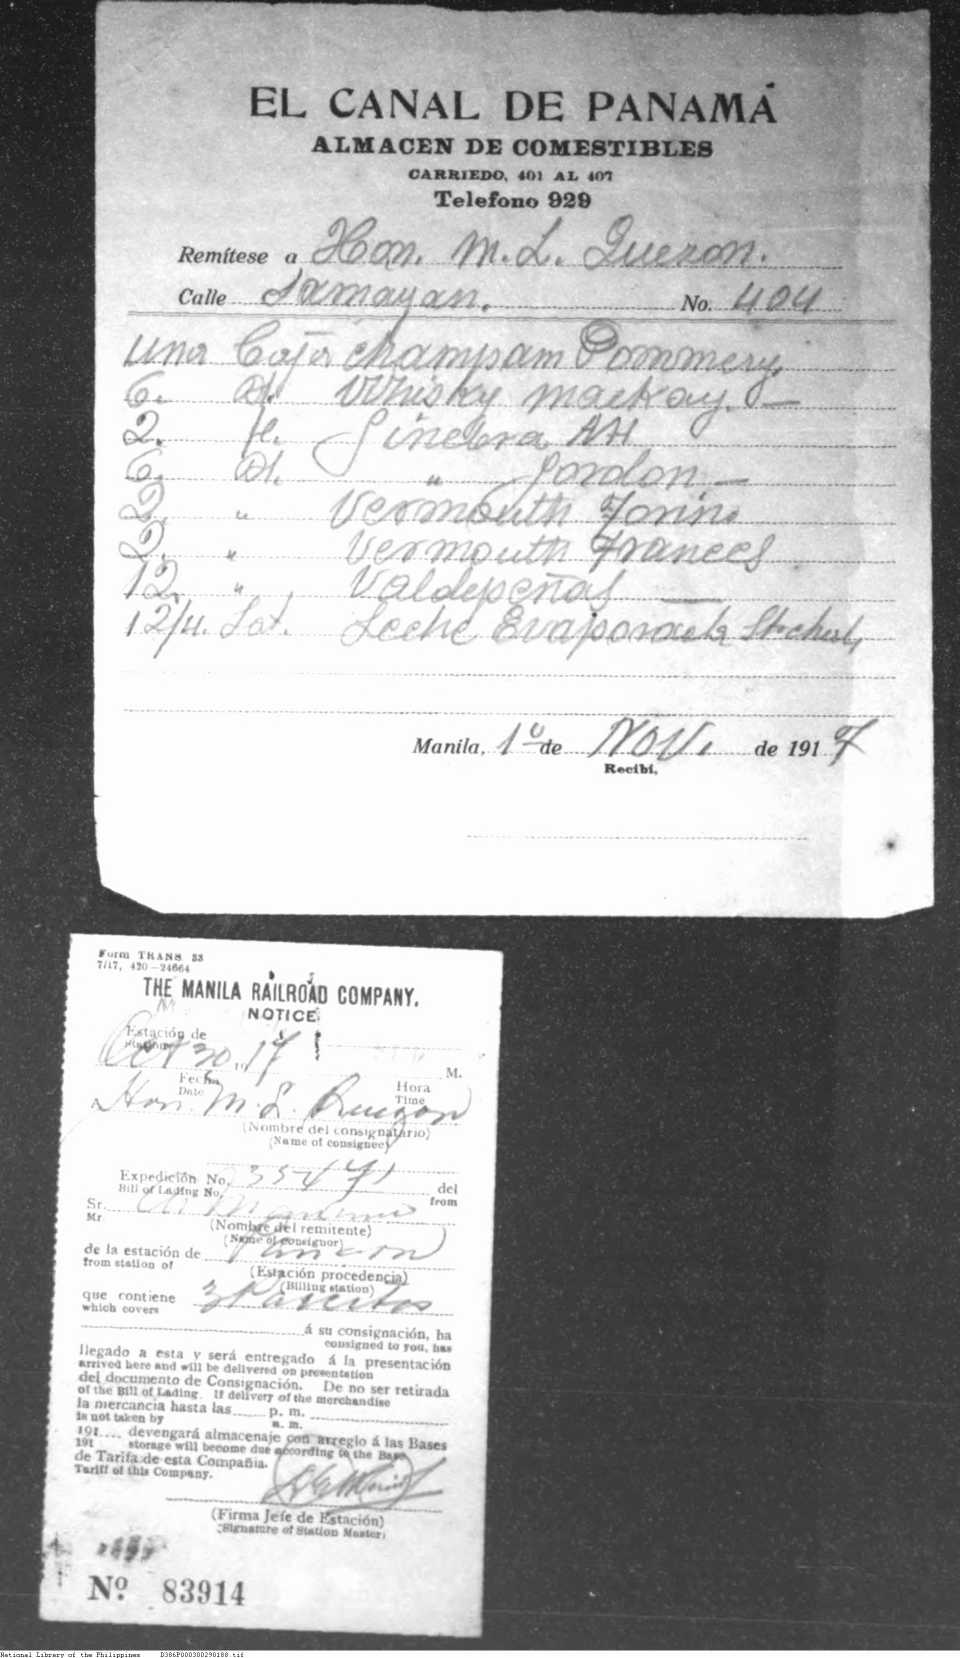 EL CANAL DE PANAMÁ
ALMACEN DE COMESTIBLES
CARRIEDO, 401 AL 407
Telefono 929
Remítese a Hon. M. L. Quezon.
Calle No. 404
Una Caja champam Pommery.
6. Bt. Whisky Mackay. —
2. fr. Ginebra AH
6. Bt. " Gordon —
2. " Vermouth Torino
2. " Vermouth Frances
12. " Valdepeñas —
12/4. Lat. Leche Evaporada
Manila, 1º de Nov. de 1917
Recibí,
Form TRANS 33
7/17, 420—24664
THE MANILA RAILROAD COMPANY.
NOTICE
Estación de
Station
Oct 30, 17 M.
Fecha Hora
Date Time
Hon. M. L. Quezon
(Nombre del consignatario)
(Name of consignee)
Expedición No. del
Bill of Lading No. from
Sr.
Mr.
(Nombre del remitente)
(Name of consignor)
de la estación de
from station of
(Estación procedencia)
(Billing station)
que contiene 3
which covers
á su consignación, ha
consigned to you, has
llegado a esta y será entregado á la presentación
arrived here and will be delivered on presentation
del documento de Consignación. De no ser retirada
of the Bill of Lading. If delivery of the merchandise
la mercancia hasta las p. m.
is not taken by a. m.
191 devengará almacenaje con arreglo á las Bases
191 storage will become due according to the Base
de Tarifa de esta Compañia.
Tariff of this Company.
(Firma Jefe de Estación)
(Signature of Station Master)
Nº 83914
National Library of the Philippines D386P000300290188.tif